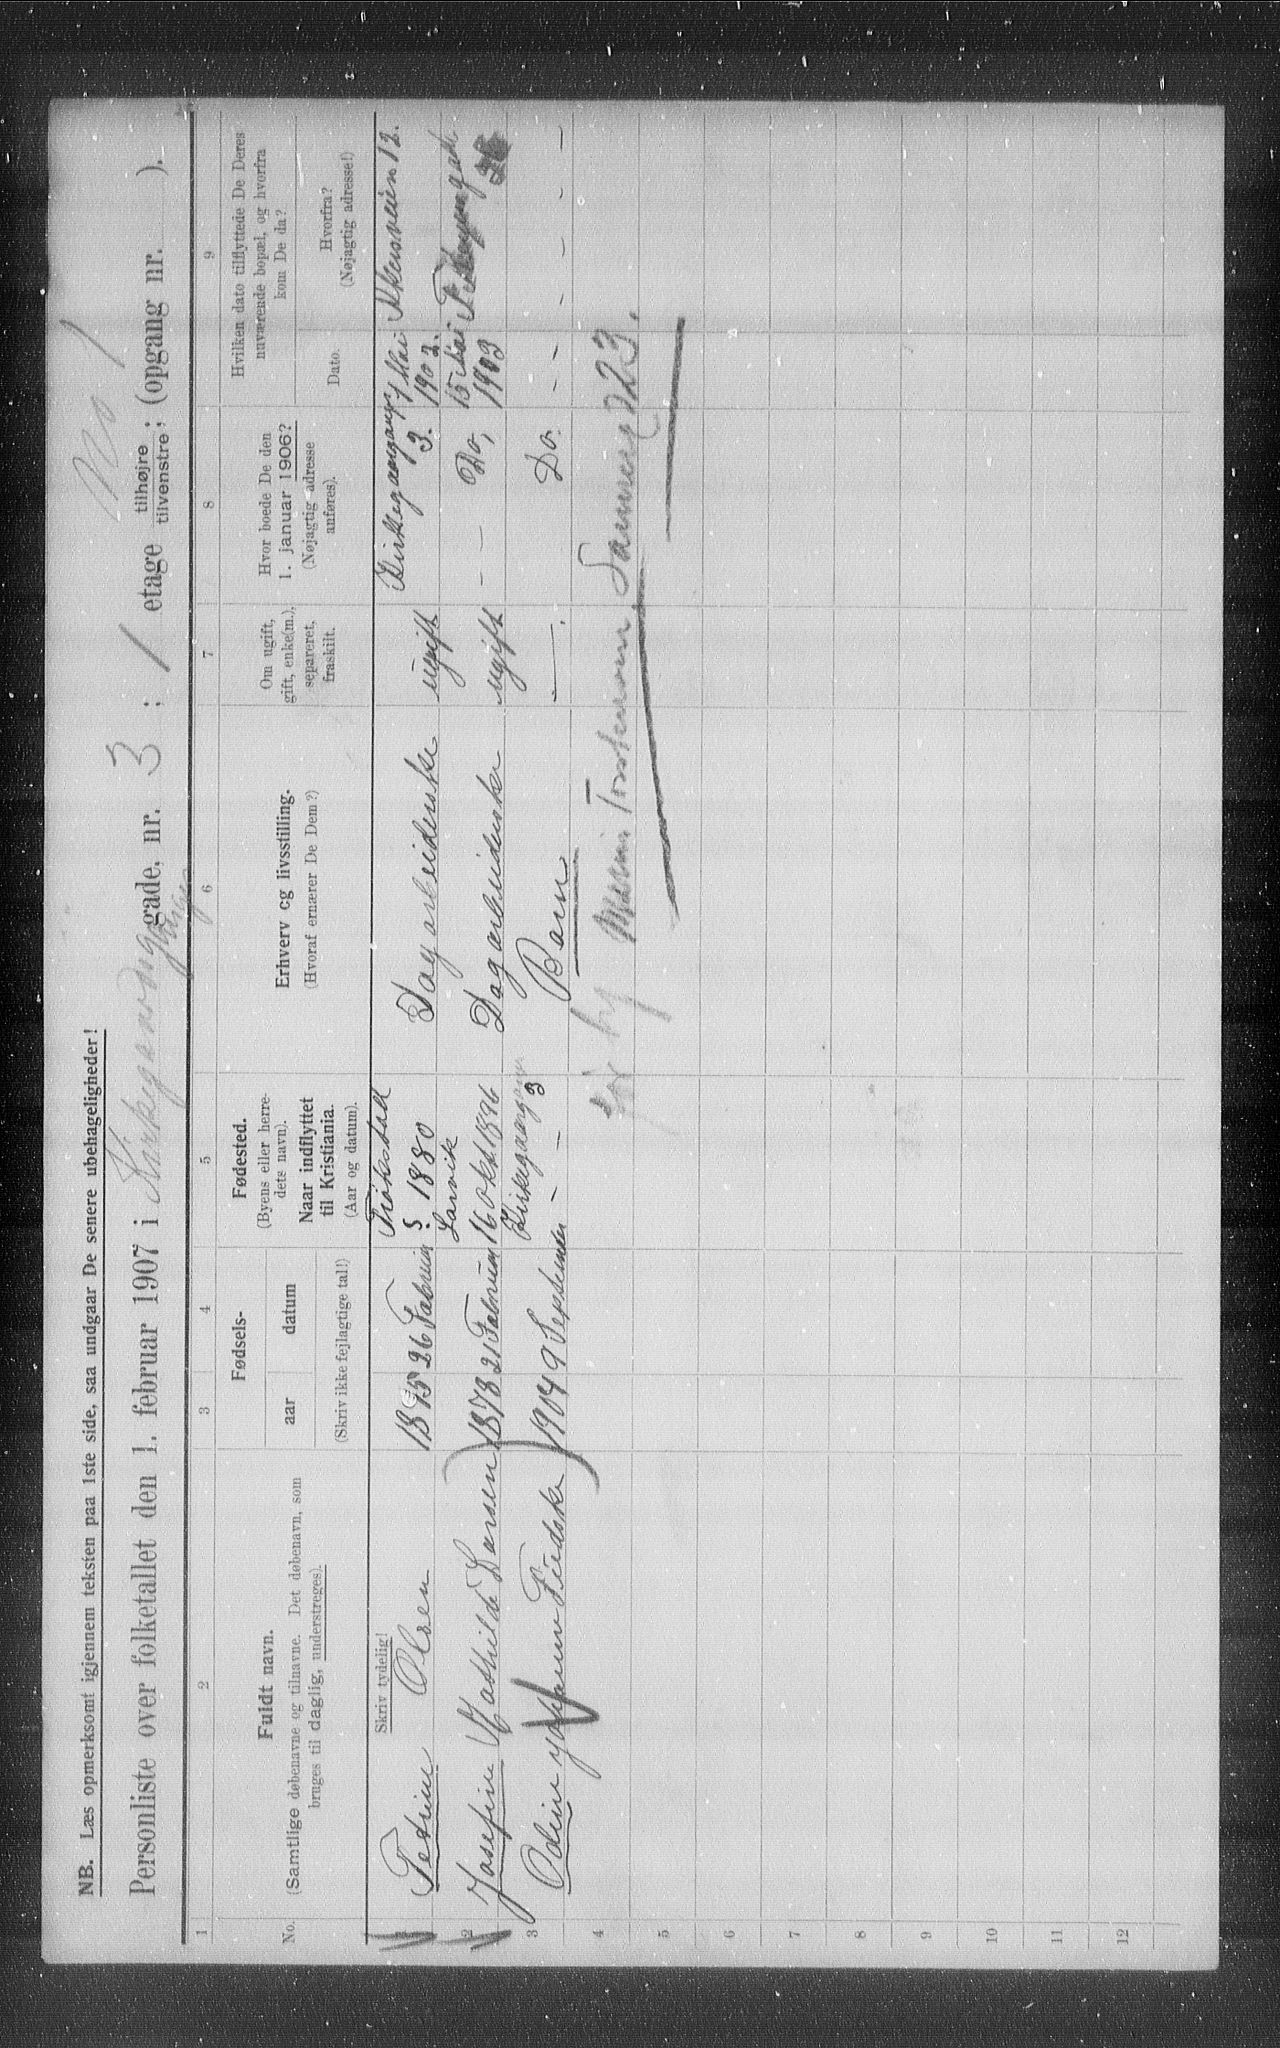 NB. Læs opmerksomt igjennem teksten paa 1ste side, saa undgaar De senere ubehageligheder!
No 1
Personliste over folketallet den 1. februar 1907 i Kirkegaards gade, nr. 3 : 1 etage tilhøjre tilvenstre; (opgang nr. ).
1 2 3 4 5 6 7 8 9
No.
Fuldt navn.
(Samtlige døbenavne og tilnavne. Det døbenavn, som
bruges til daglig, understreges).
Fødsels-
aar datum
(Skriv ikke fejlagtige tal!)
Fødested.
(Byens eller herre-
dets navn).
Naar indflyttet
til Kristiania.
(Aar og datum).
Erhverv og livsstilling.
(Hvoraf ernærer De Dem?)
Om ugift,
gift, enke(m.),
separeret,
fraskilt.
Hvor boede De den
1. januar 1906?
(Nøjagtig adresse
anføres).
Hvilken dato tilflyttede De Deres
nuværende bopæl, og hvorfra
kom De da?
Dato.
Hvorfra?
(Nøjagtig adresse!)
Skriv tydelig!
1 Petrine Olsen 1875 26 Februar Trøkstad 1880 Dagarbeiderske ugift 3. Mai 1902. Akersveien 12.
2 Josefine Mathilde Larsen 1878 21 Februar Larvik 16 Okt 1896 Dagarbeiderske ugift - - Do, 15 Mai 1903
3 Odin Johann Fredrik 1904 9 September 3 - - Barn —. Do. - - - - - -
4 Marie Torstensen, Sannergd 23.
5
6
7
8
9
10
11
12